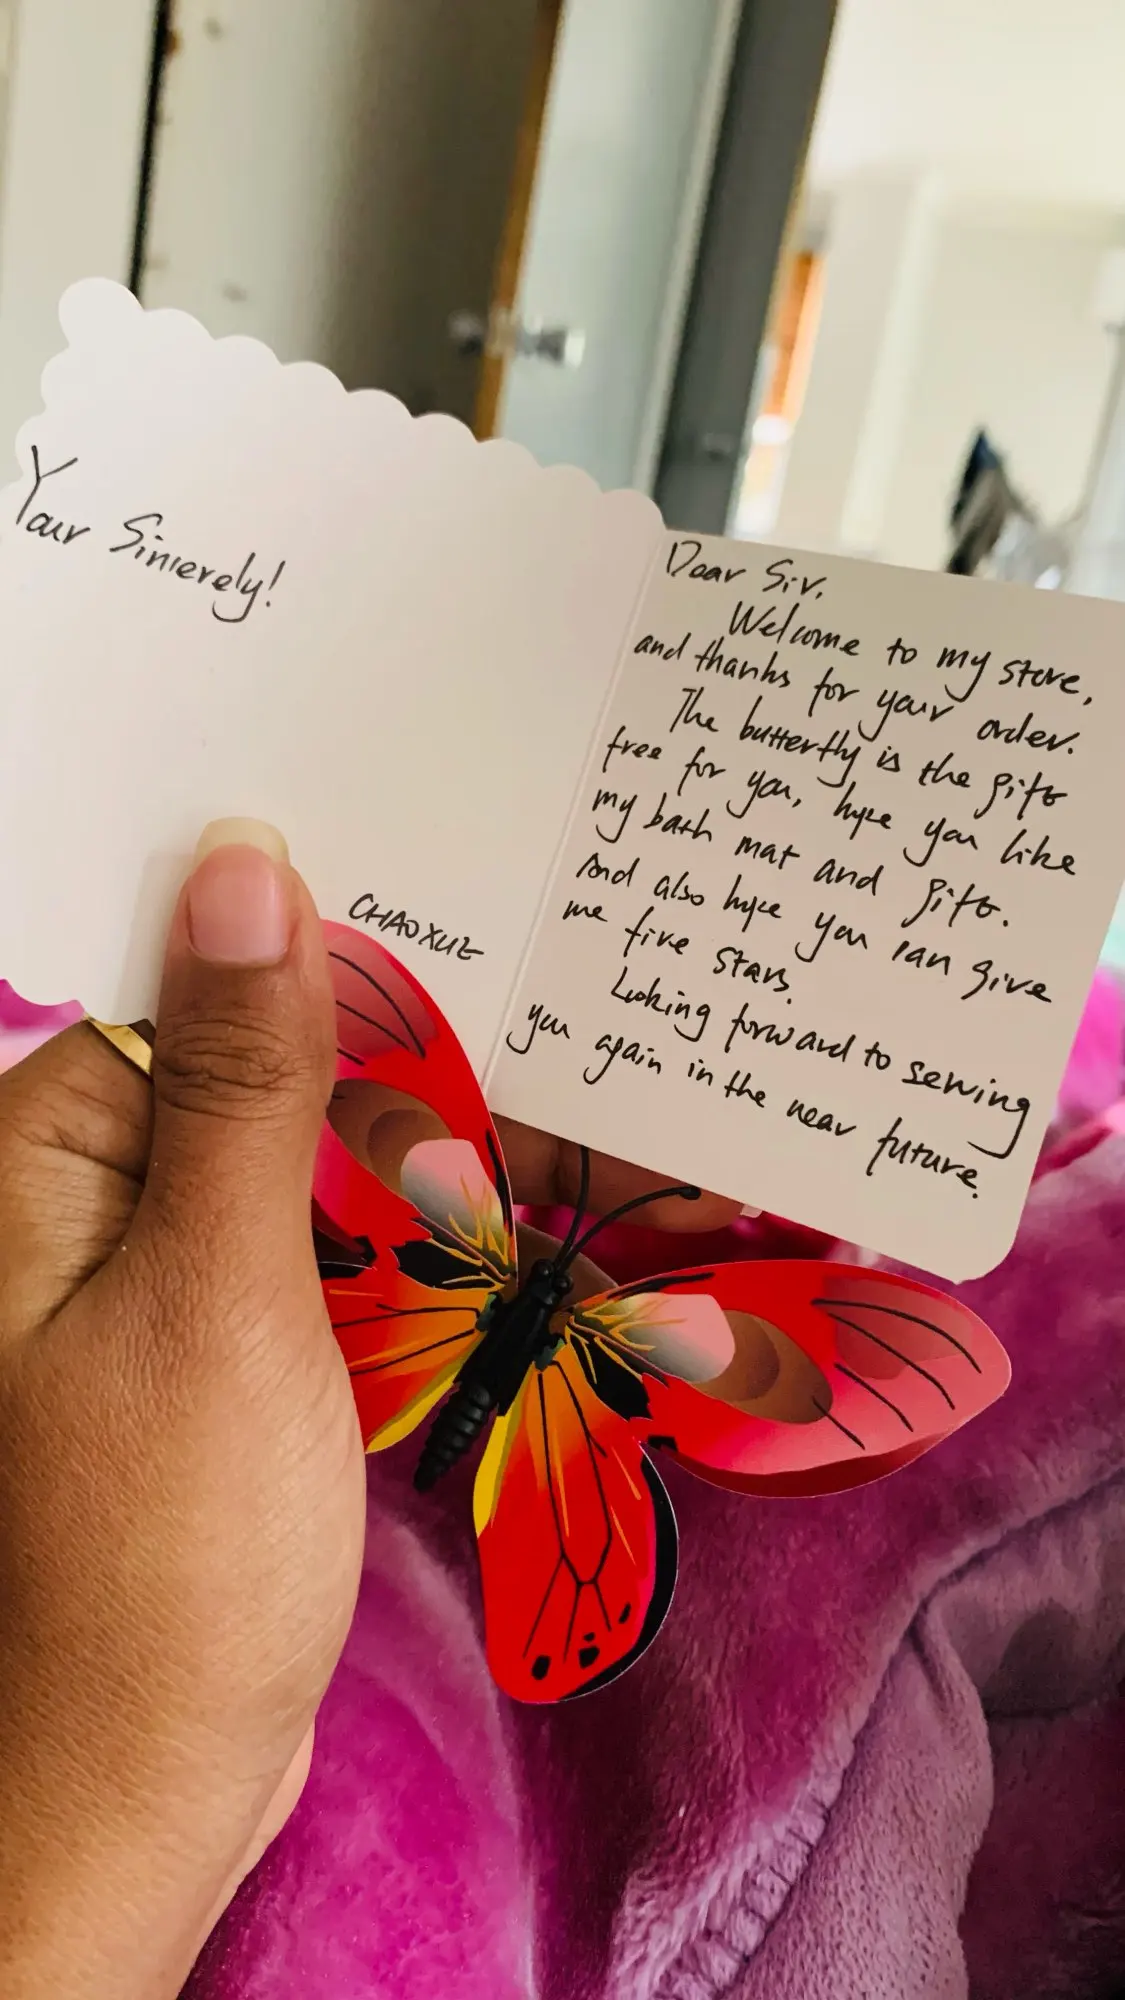 Your Sincerely!
CHAOXUE
Dear Sir,
Welcome to my store,
and thanks for your order.
The butterfly is the gift
free for you, hope you like
my bath mat and gift.
And also hope you can give
me five stars.
Looking forward to serving
you again in the near future.